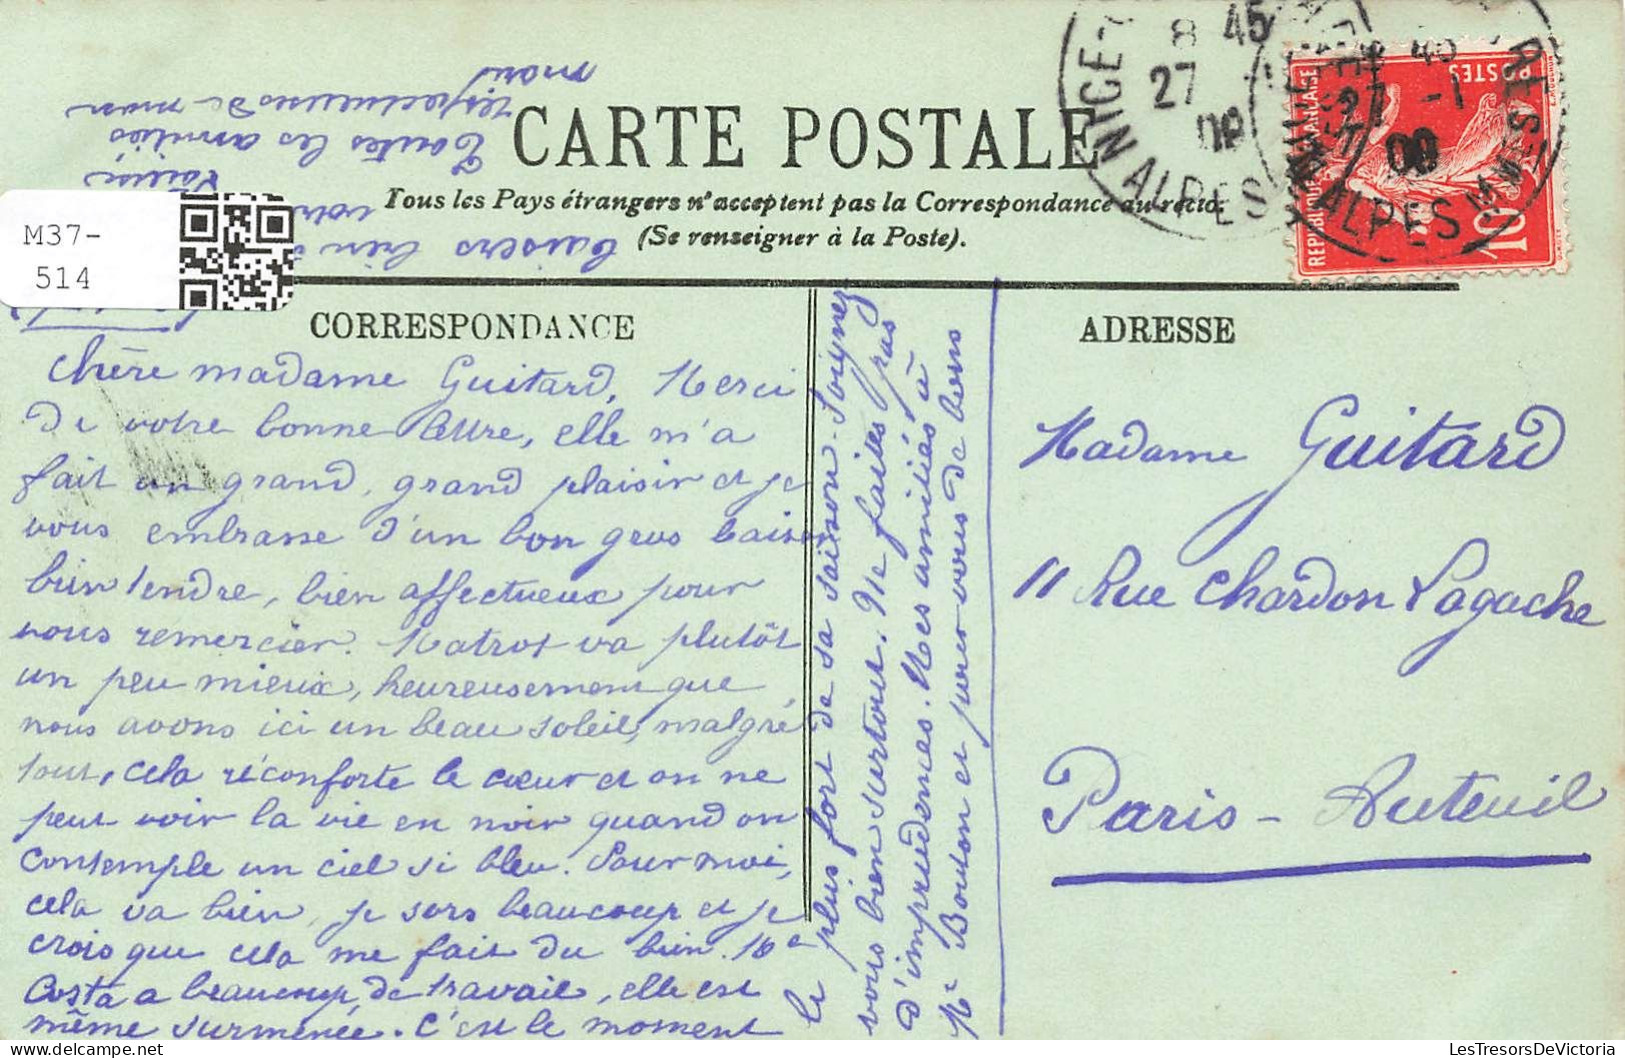 CARTE POSTALE
Tous les Pays étrangers n'acceptent pas la Correspondance au recto.
(Se renseigner à la Poste).
CORRESPONDANCE
ADRESSE
M37-
514
Chère madame Guitard, Merci
De votre bonne lettre, elle m'a
fait un grand, grand plaisir et je
vous embrasse d'un bon gros baiser
bien tendre, bien affectueux pour
vous remercier. Matrot va plutôt
un peu mieux, heureusement que
nous avons ici un beau soleil, malgré
tout, cela réconforte le cœur et on ne
peut voir la vie en noir quand on
contemple un ciel si bleu. Pour moi,
cela va bien, je sors beaucoup et je
crois que cela me fait du bien. Me
Costa a beaucoup de travail, elle est
même surmenée. C'est le moment
le plus fort de sa saison. Soignez
vous bien surtout. Ne faites pas
d'imprudences. Mes amitiés à
Me Bouton et pour vous de bons
baisers bien
Louise
Toutes les amitiés
respectueuses de mon
mari
Madame Guitard
11 Rue Chardon Lagache
Paris - Auteuil
REPUBLIQUE FRANÇAISE
POSTES
10
NICE
ALPES MMES
8 45
27 -1
09
LesTresorsDeVictoria